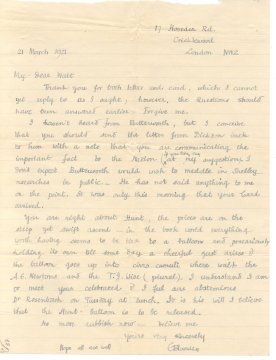 17 Rd.
Cricklewood
London NW2
21 March 1921
My dear
Thank you for both letter and card, which I cannot
get reply to as I ought, however, the questions should
have been answered earlier. Forgive me.
I haven't heard from Butterworth, but I conceive
that you should send the letter from Dickson back
to him with a note that you are communicating the
important fact to the at my suggestion. I
don't expect Butterworth would wish to meddle in Shelley
researches in public. He has not said anything to me
on the point. It was only this morning that your card
arrived.
You are right about Hunt, the prices are on the
steep yet swift ascent. in the book world everything
worth having seems to be tied to a balloon and precariously
holding its own till some boy a cheerful jest arises &
the balloon goes up into cirrus cumuli where waft the
A.E. Newtons and the T.J. Wise (plural). I understand I am
to meet your celebrated & I feel
Dr Rosenbach on Tuesday at lunch. It is his will I believe
that the Hunt-balloon is to be released.
No more rubbish now - believe me
Yours very sincerely
Hope all are well